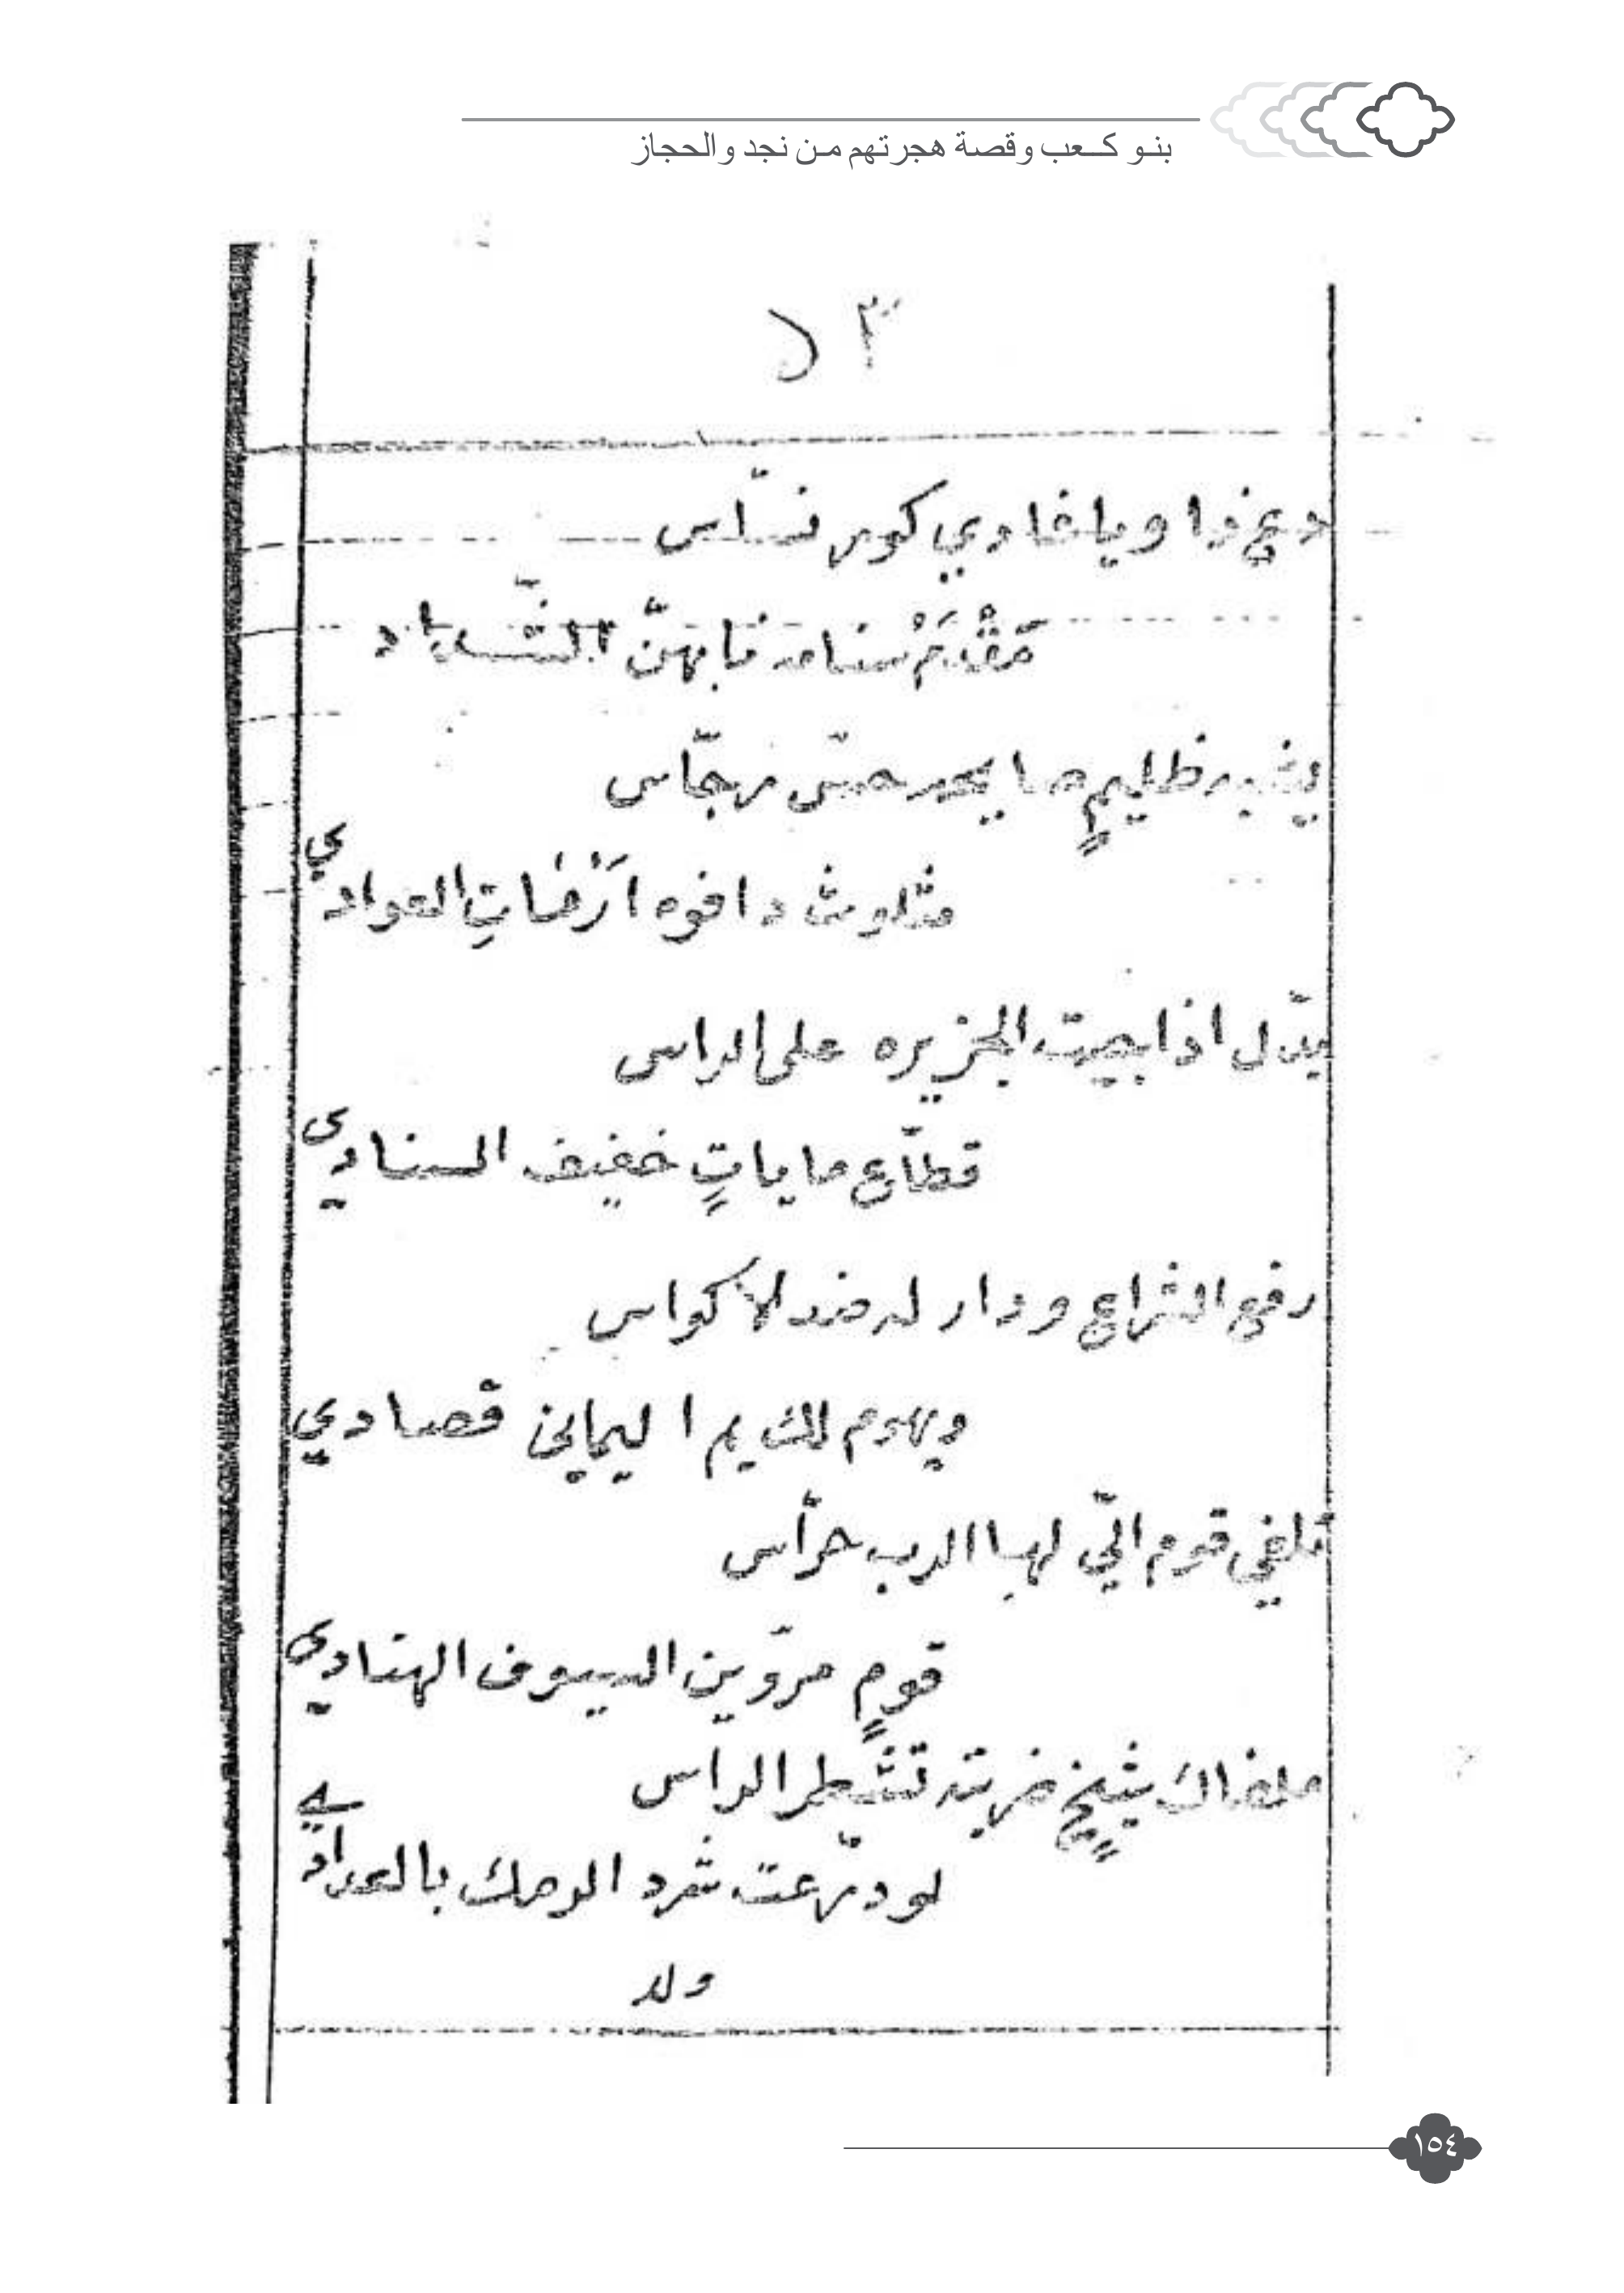 بنو كعب وقصة هجرتهم من نجد والحجاز
دع ذا ويا غادي كور نسّاس
مَقْدَمْ سنامه نابهنّ الشّداد
يشبه ظليمٍ حس رجّاس
دافوه العوادي
يدّل اذا جيت الجزيره على الراس
قطّاع ماياتٍ خفيف السنادي
رفع الشراع ودار له ضد لاكواس
ويهوم لك يم اليماني قصادي
تلفي قوم الّي لها الدرب حرّاس
قومٍ مروّين السيوف الهنادي
ملفاك شيخٍ ضربته تشطر الراس
لو درّعت شرد الرمك بالعدادي
ولد
١٥٤